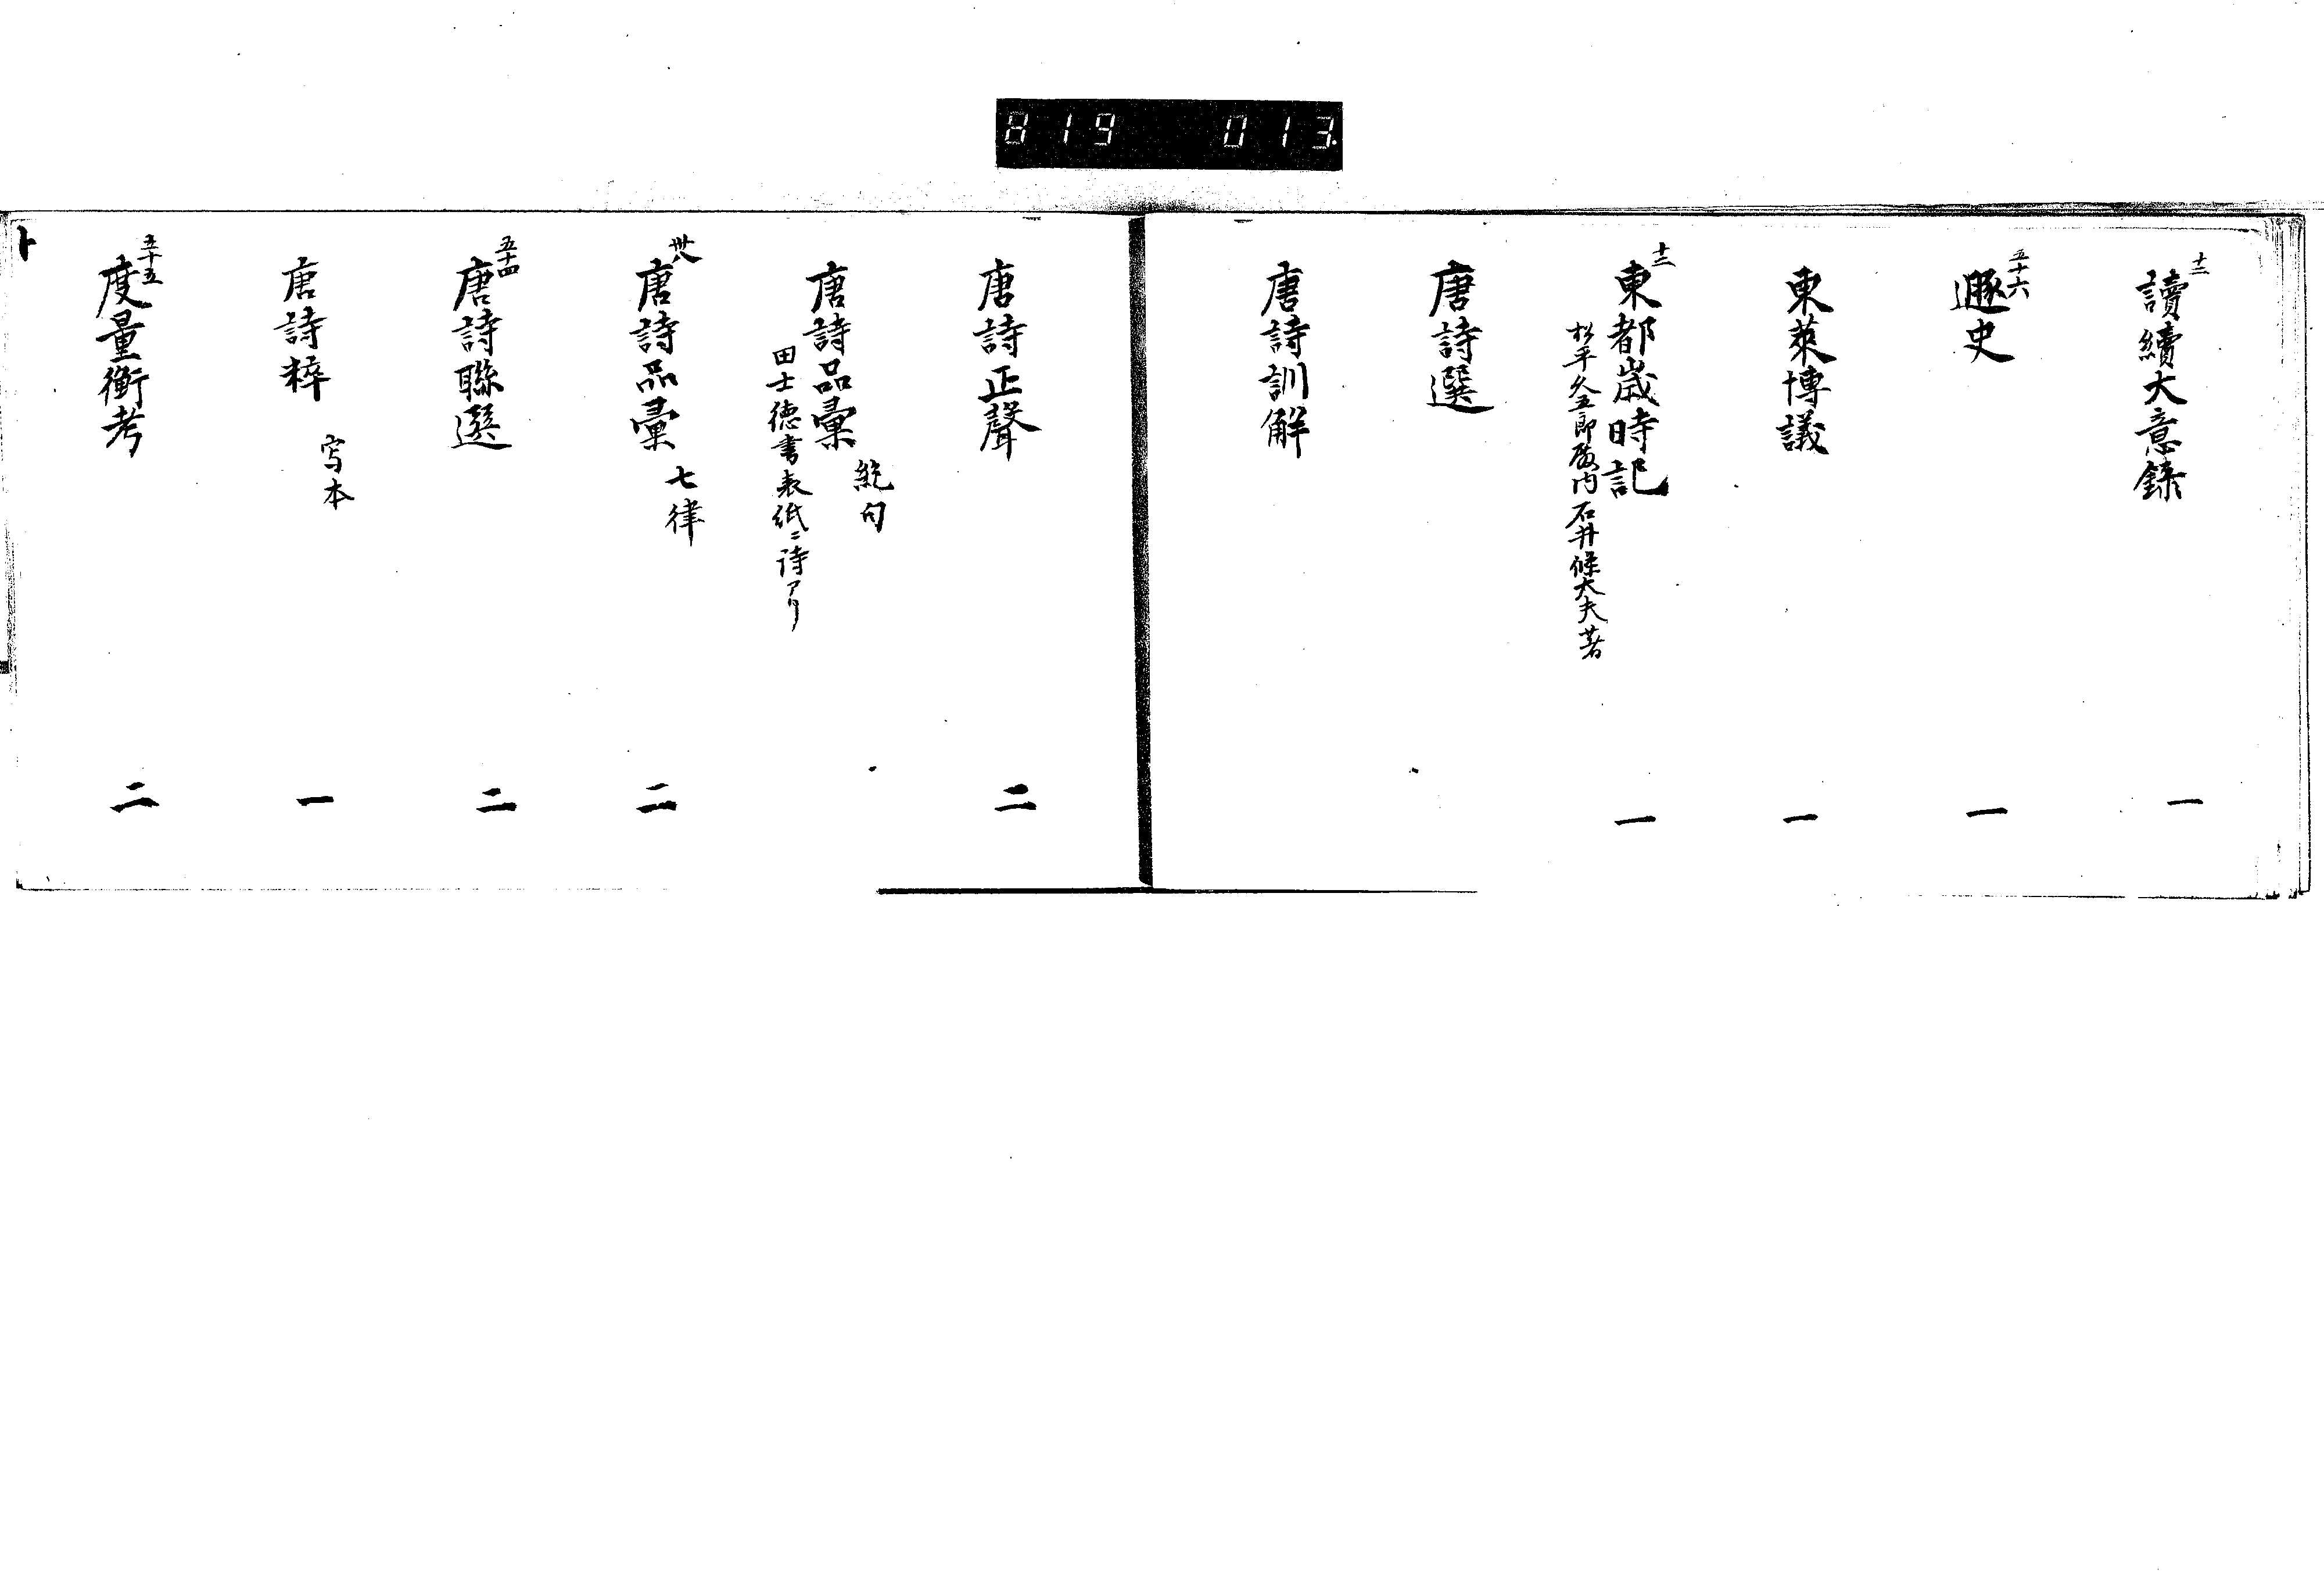 819 013
十二
讀續大意録 一
五十六
遯史 一
東萊博議 一
十二
東都歳時記 一
松平久五郎殿内 石井條大夫著
唐詩選
唐詩訓解
唐詩正聲 二
唐詩品彙 絶句
田士徳書表紙ニ詩アリ
唐詩品彙 七律 二
五十四
唐詩聯選 二
唐詩粹 写本 一
五十五
度量衡考 二
ト